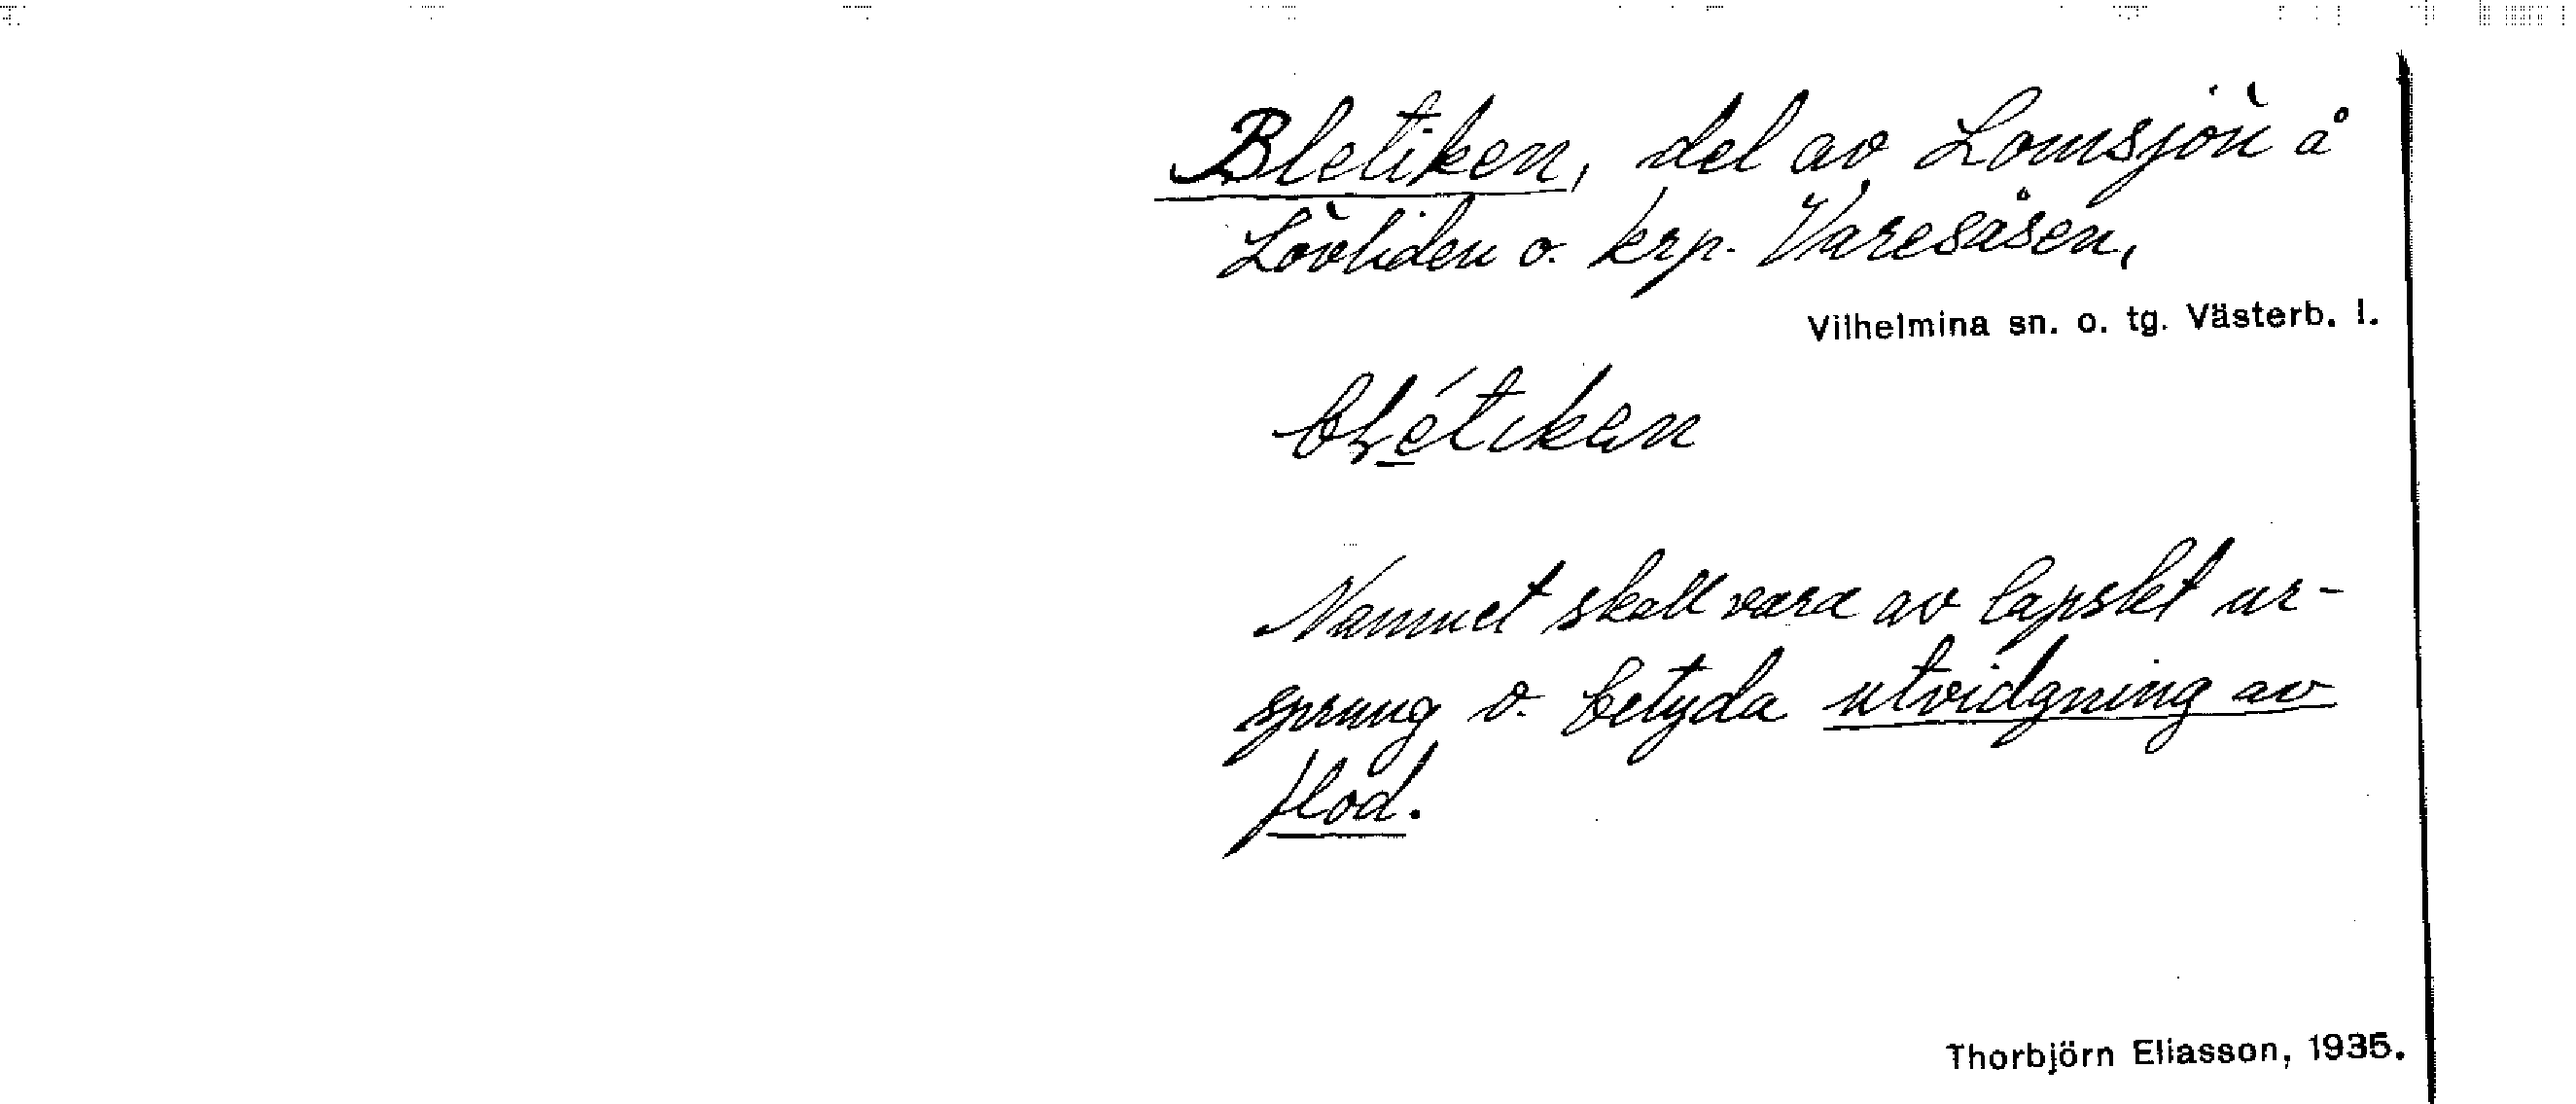 Bletiken, del av Lomsjön å
Lövliden o. krp. Varesåsen,
Vilhelmina sn. o. tg. Västerb. l.
blétiken
Namnet skall vara av lapskt ur-
sprung o. betyda utvidgning av
flod.
Thorbjörn Eliasson, 1935.